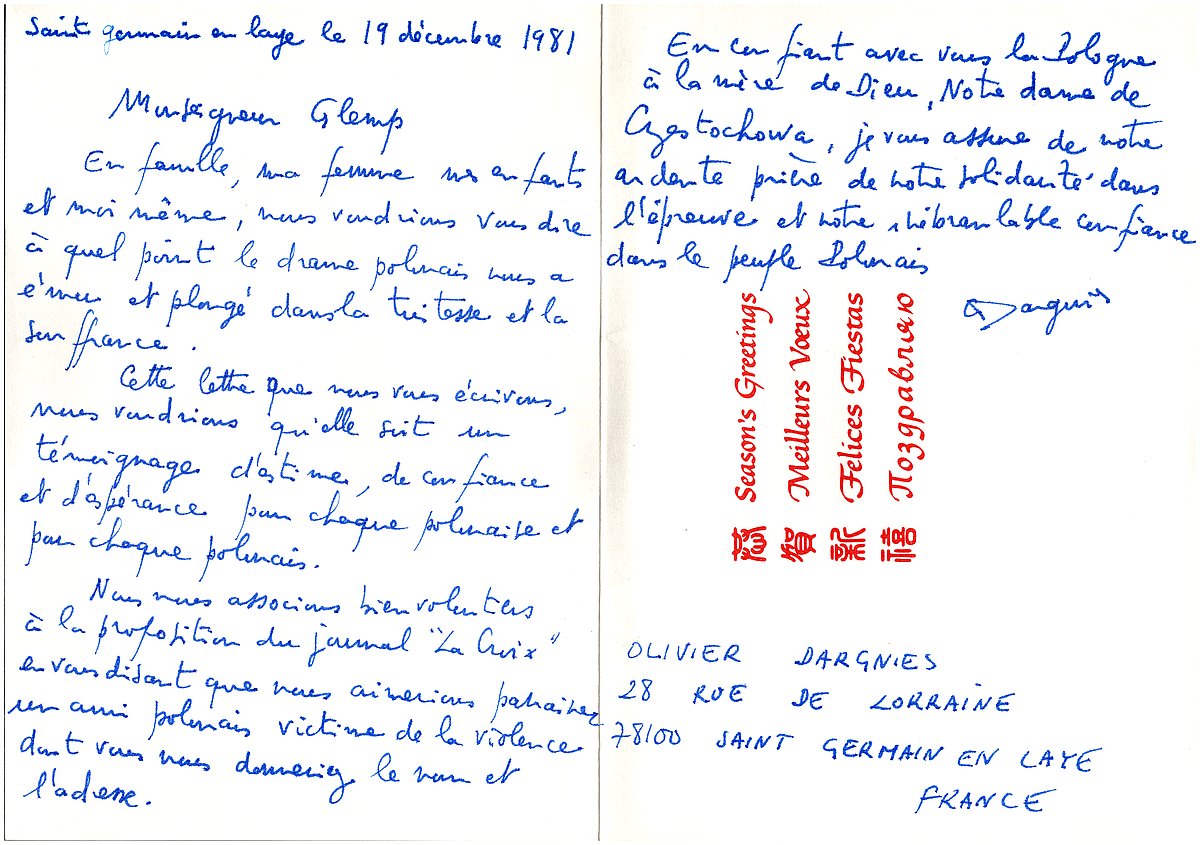 Saint germain en laye le 19 décembre 1981
Monseigneur Glemp
En famille, ma femme mes enfants
et moi même, nous voudrions vous dire
à quel point le drame polonais nous a
émus et plongé dans la tristesse et la
souffrance.
Cette lettre que nous vous écrivons,
nous voudrions qu'elle soit un
témoignage d'estime, de confiance
et d'espérance pour chaque polonaise et
pour chaque polonais.
Nous nous associons bien volontiers
à la proposition du journal "La Croix"
en vous disant que nous aimerions parrainer
un ami polonais victime de la violence
dont vous nous donneriez le nom et
l'adresse.
En confiant avec vous la Pologne
à la mère de Dieu, Notre dame de
Częstochowa, je vous assure de notre
ardente prière de notre solidarité dans
l'épreuve et notre inébranlable confiance
dans le peuple Polonais
Dargnies
Season's Greetings
Meilleurs Vœux
Felices Fiestas
Поздравляю
恭賀新禧
OLIVIER DARGNIES
28 RUE DE LORRAINE
78100 SAINT GERMAIN EN LAYE
FRANCE